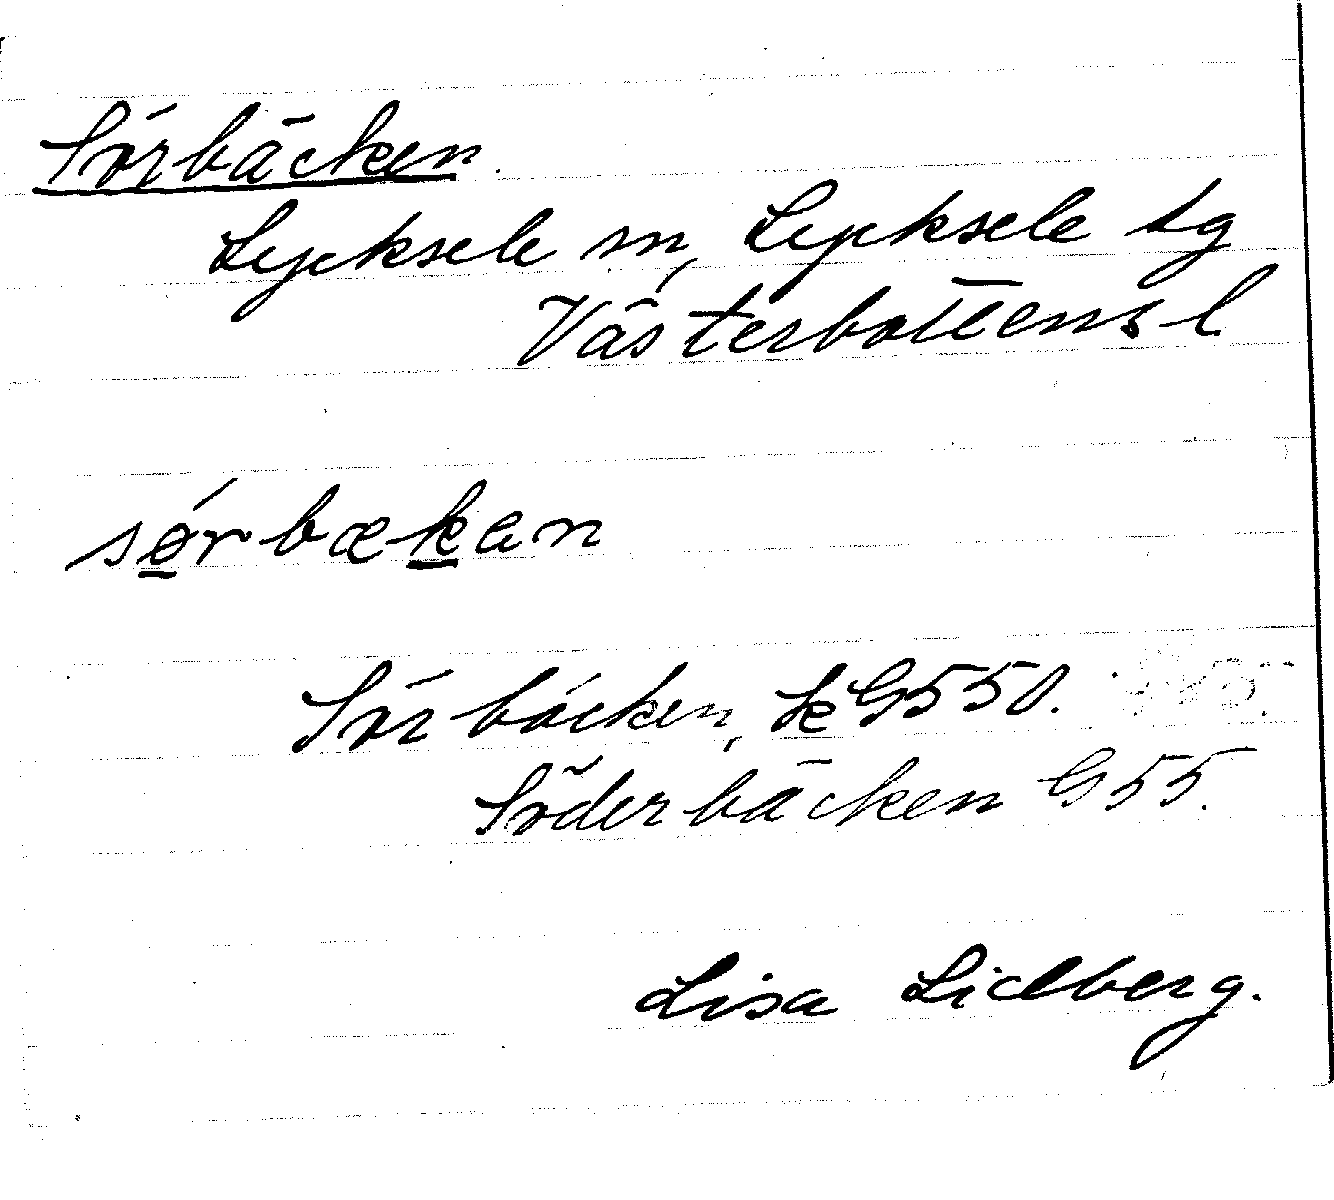 Sörbäcken.
Lycksele sn, Lycksele lg
Västerbottens l.
sǿrbækan
Sörbäcken, k G 550.
Söderbäcken G 55.
Lisa Lidberg.